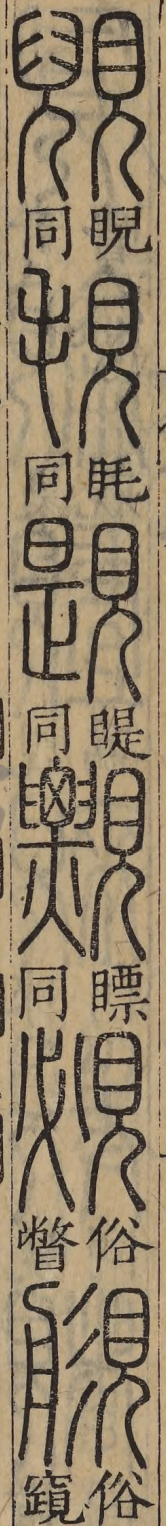 睨同
覒
眊同
䚣
睼同
瞟同
覕
俗瞥
俗窺